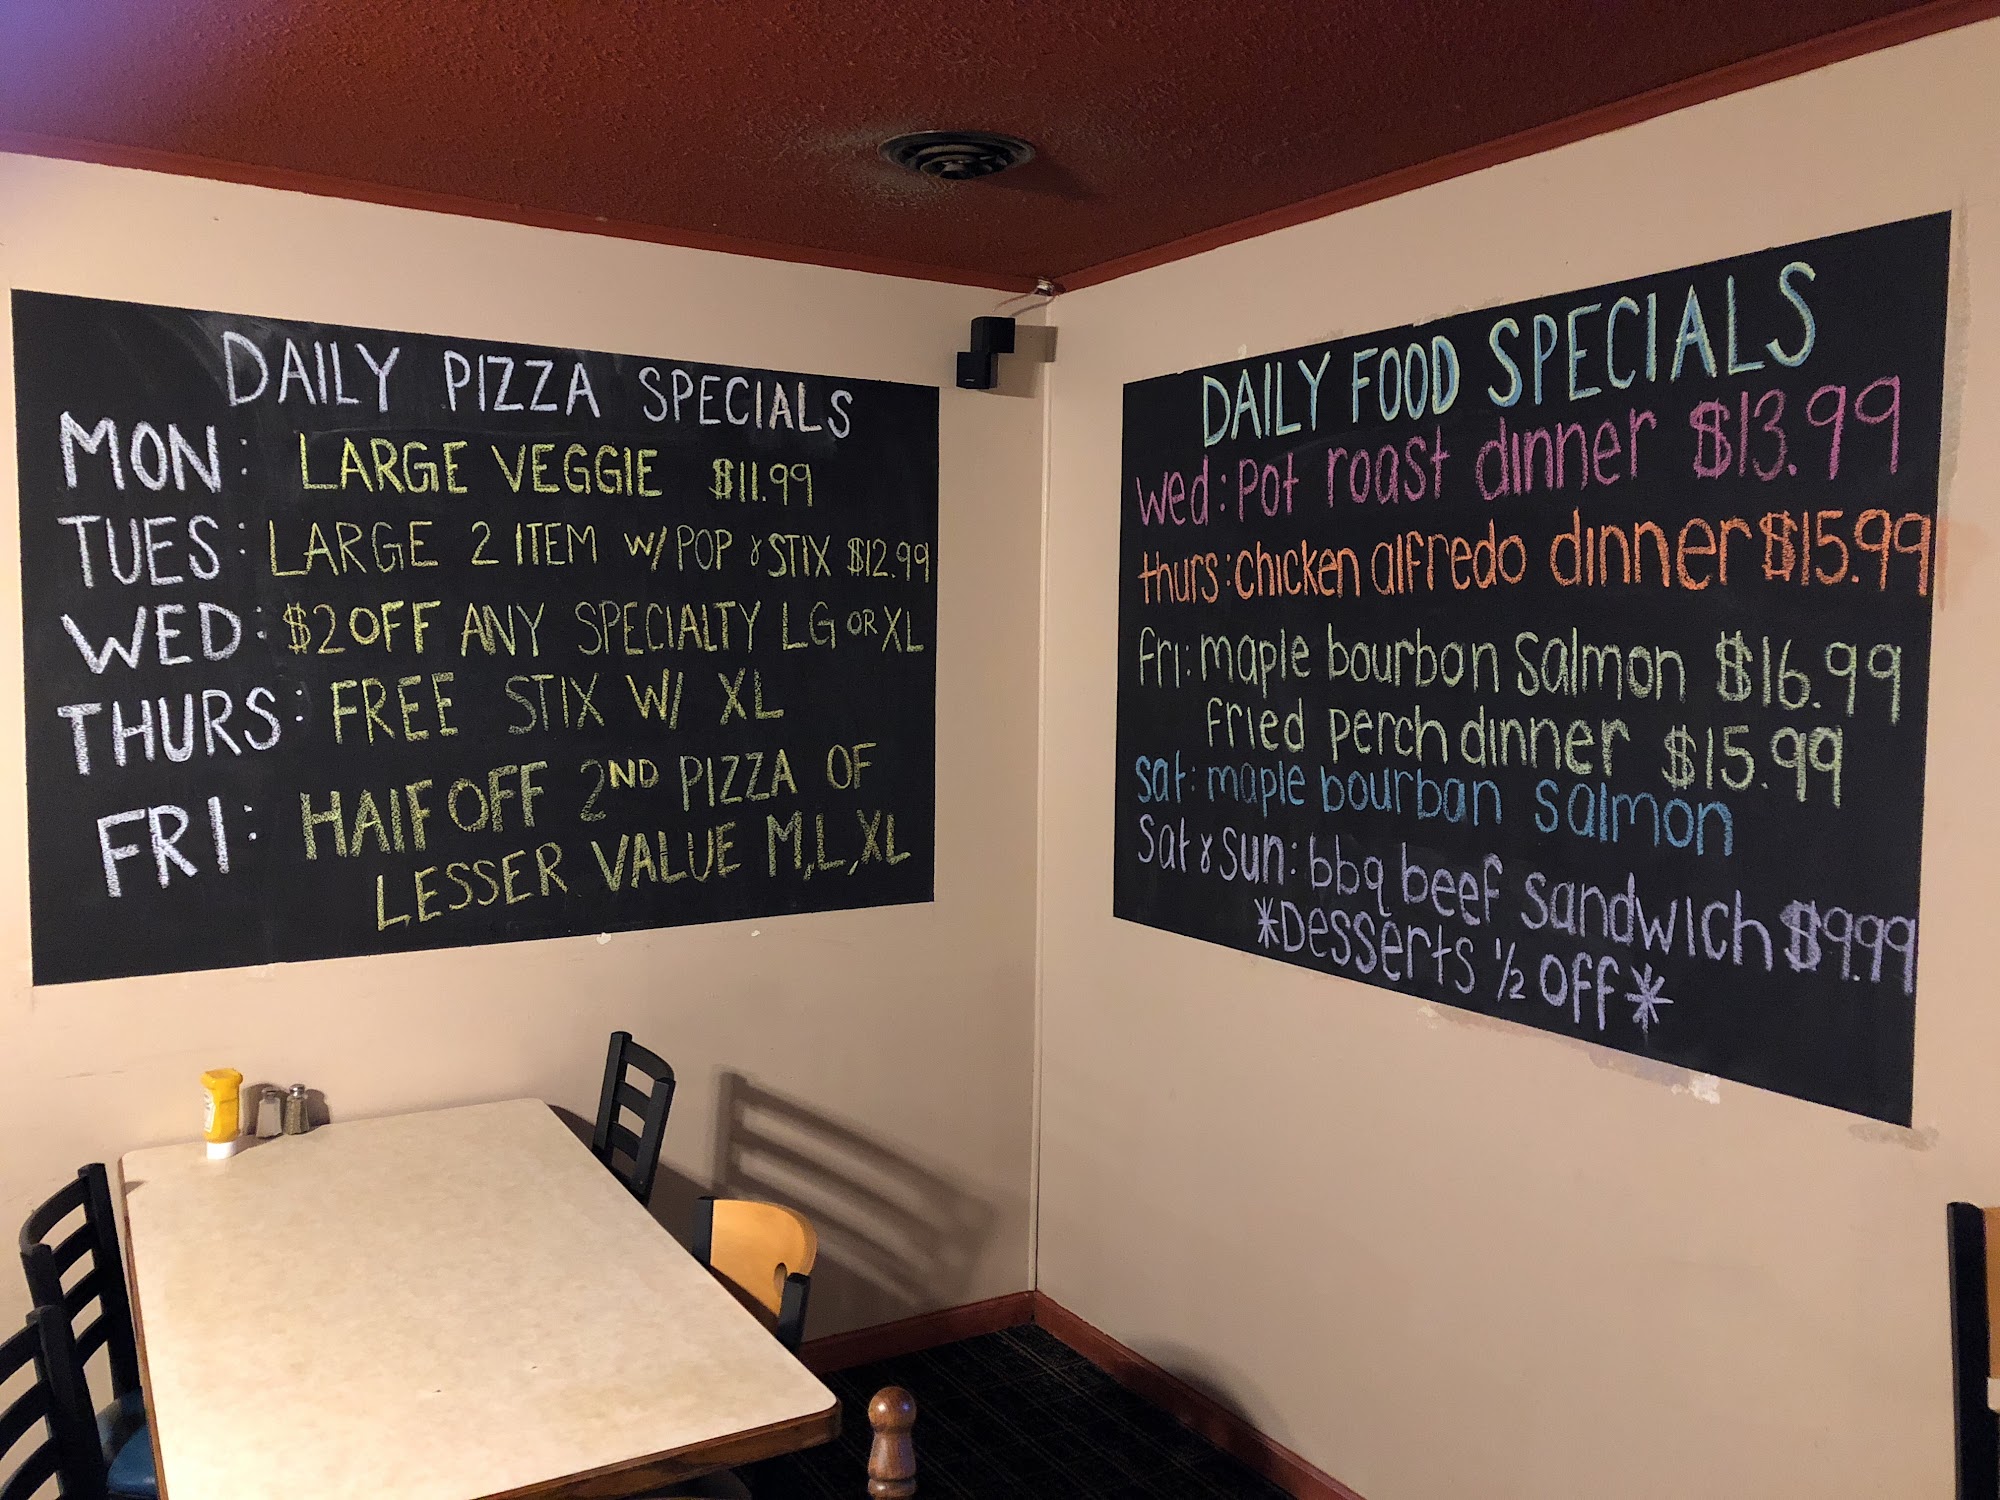 DAILY PIZZA SPECIALS
MON: LARGE VEGGIE $11.99
TUES: LARGE 2 ITEM W/ POP & STIX $12.99
WED: $2 OFF ANY SPECIALTY LG OR XL
THURS: FREE STIX W/ XL
FRI: HALF OFF 2ND PIZZA OF
LESSER VALUE M, L, XL
DAILY FOOD SPECIALS
wed: pot roast dinner $13.99
thurs: chicken alfredo dinner $15.99
fri: maple bourbon salmon $16.99
fried perch dinner $15.99
sat: maple bourban salmon
sat & sun: bbq beef sandwich $9.99
*Desserts 1/2 off*